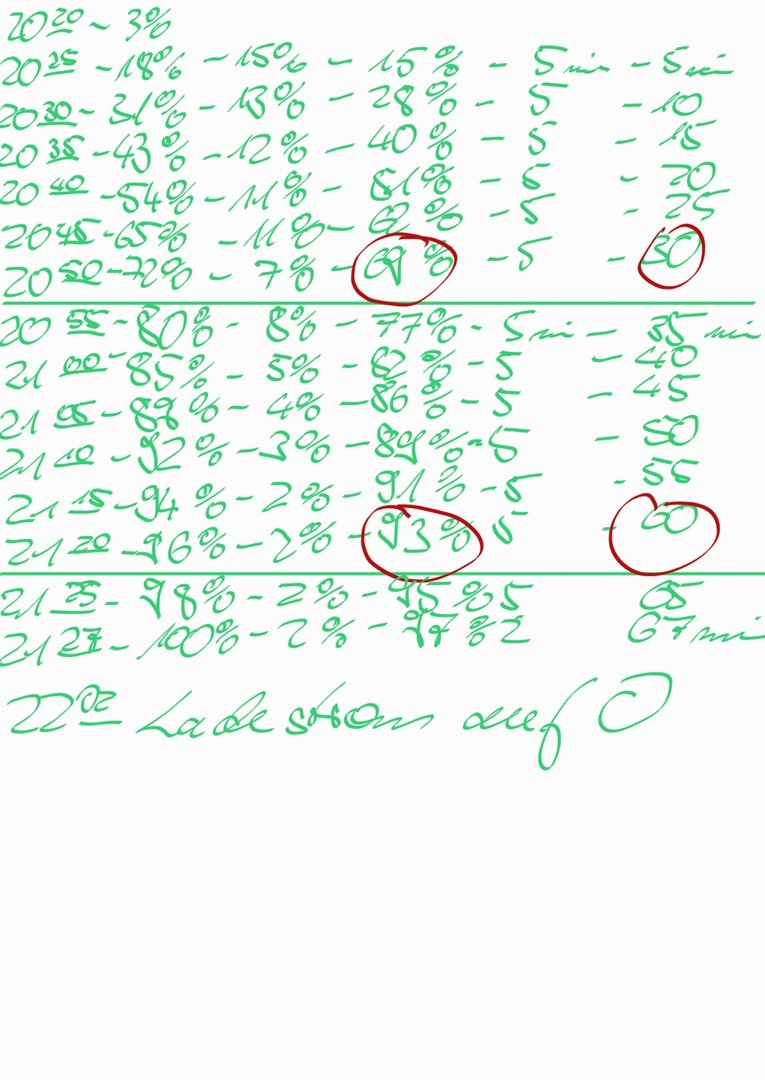 20 20 - 3%
20 25 - 18% - 15% - 15% - 5 min - 5 min
20 30 - 31% - 13% - 28% - 5 - 10
20 35 - 43% - 12% - 40% - 5 - 15
20 40 - 54% - 11% - 81% - 5 - 20
20 45 - 65% - 11% - 62% - 5 - 25
20 50 - 72% - 7% - 69% - 5 - 30
20 55 - 80% - 8% - 77% - 5 min - 35 min
21 00 - 85% - 5% - 82% - 5 - 40
21 05 - 89% - 4% - 86% - 5 - 45
21 10 - 92% - 3% - 89% - 5 - 50
21 15 - 94% - 2% - 91% - 5 - 55
21 20 - 96% - 2% - 93% 5 - 60
21 25 - 98% - 2% - 95% 5 65
21 27 - 100% - 2% - 97% 2 67 min
22 02 Ladestrom auf 0